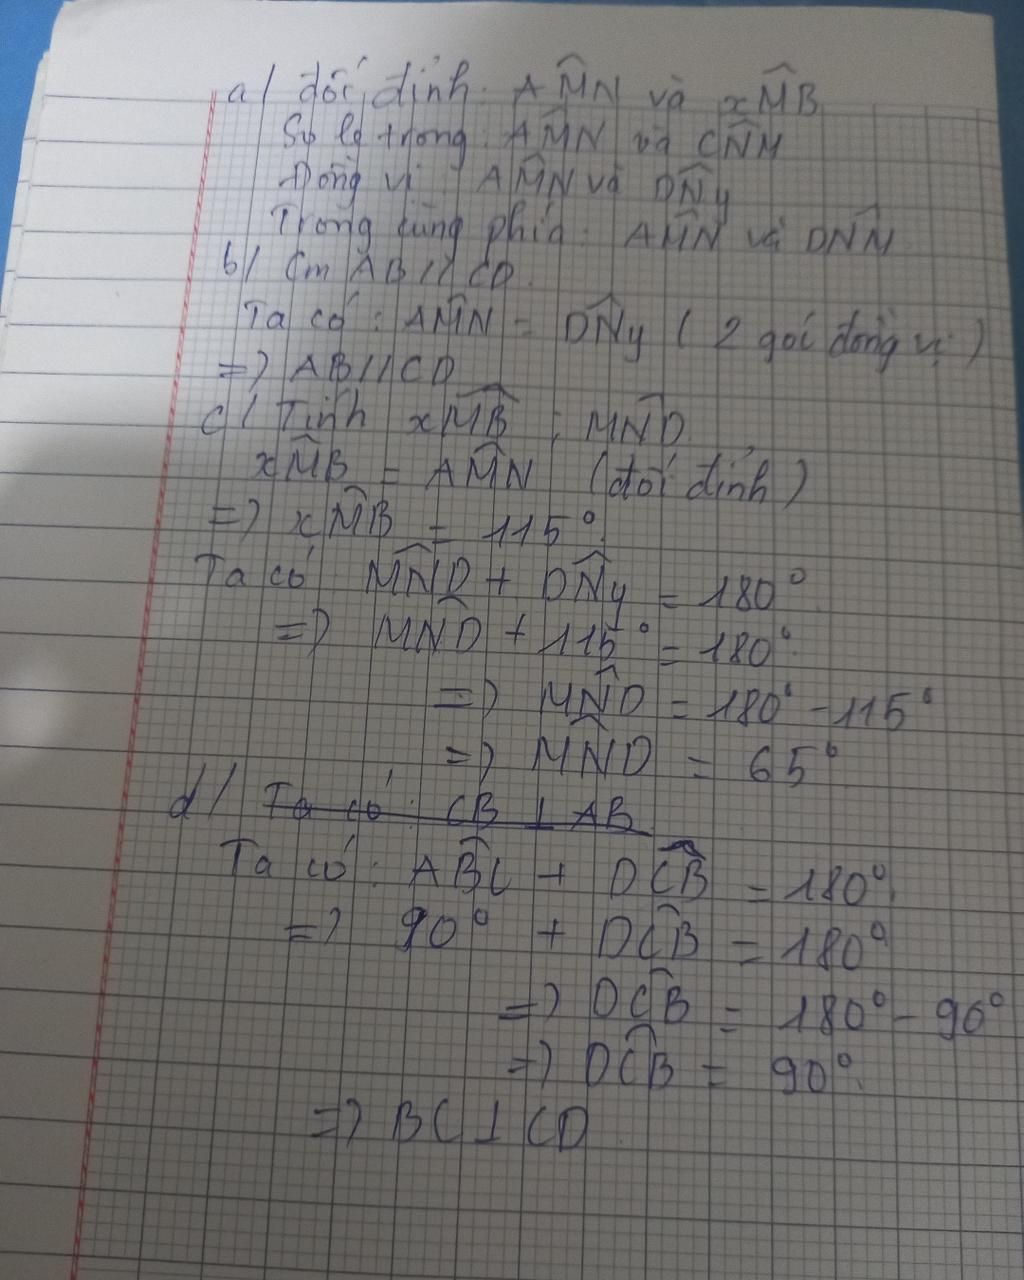 a/ đối đỉnh: AM̂N và xM̂B
So le trong: AM̂N và CN̂M
Đồng vị AM̂N và DN̂y
Trong cùng phía: AM̂N và DN̂M
b/ Cm AB // CD.
Ta có: AM̂N = DN̂y ( 2 goí đồng vị )
=> AB // CD
c/ Tính xM̂B ; MN̂D.
xM̂B = AM̂N (đối đỉnh)
=> xM̂B = 115°.
Ta có MN̂D + DN̂y = 180°.
=> MN̂D + 115° = 180°.
=> MN̂D = 180° - 115°
=> MN̂D = 65°
d/ Ta có: CB ⊥ AB
Ta có: AB̂C + DĈB = 180°.
=> 90° + DĈB = 180°
=> DĈB = 180° - 90°
=> DĈB = 90°.
=> BC ⊥ CD